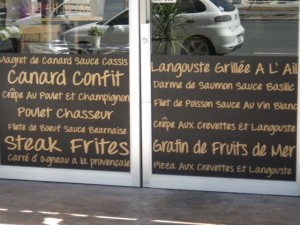 Magret de Canard Sauce Cassis
Canard Confit
Crêpe Au Poulet Et Champignon
Poulet Chasseur
Filete de Boeuf Sauce Bearnaise
Steak Frites
Carré d'Agneau a la provençale
Langouste Grillée A L' Ail
Darme de Saumon Sauce Basilic
Filet de Poisson Sauce Au Vin Blanc
Crêpe Aux Crevettes Et Langouste
Gratin de Fruits de Mer
Pizza Aux Crevettes Et Langouste